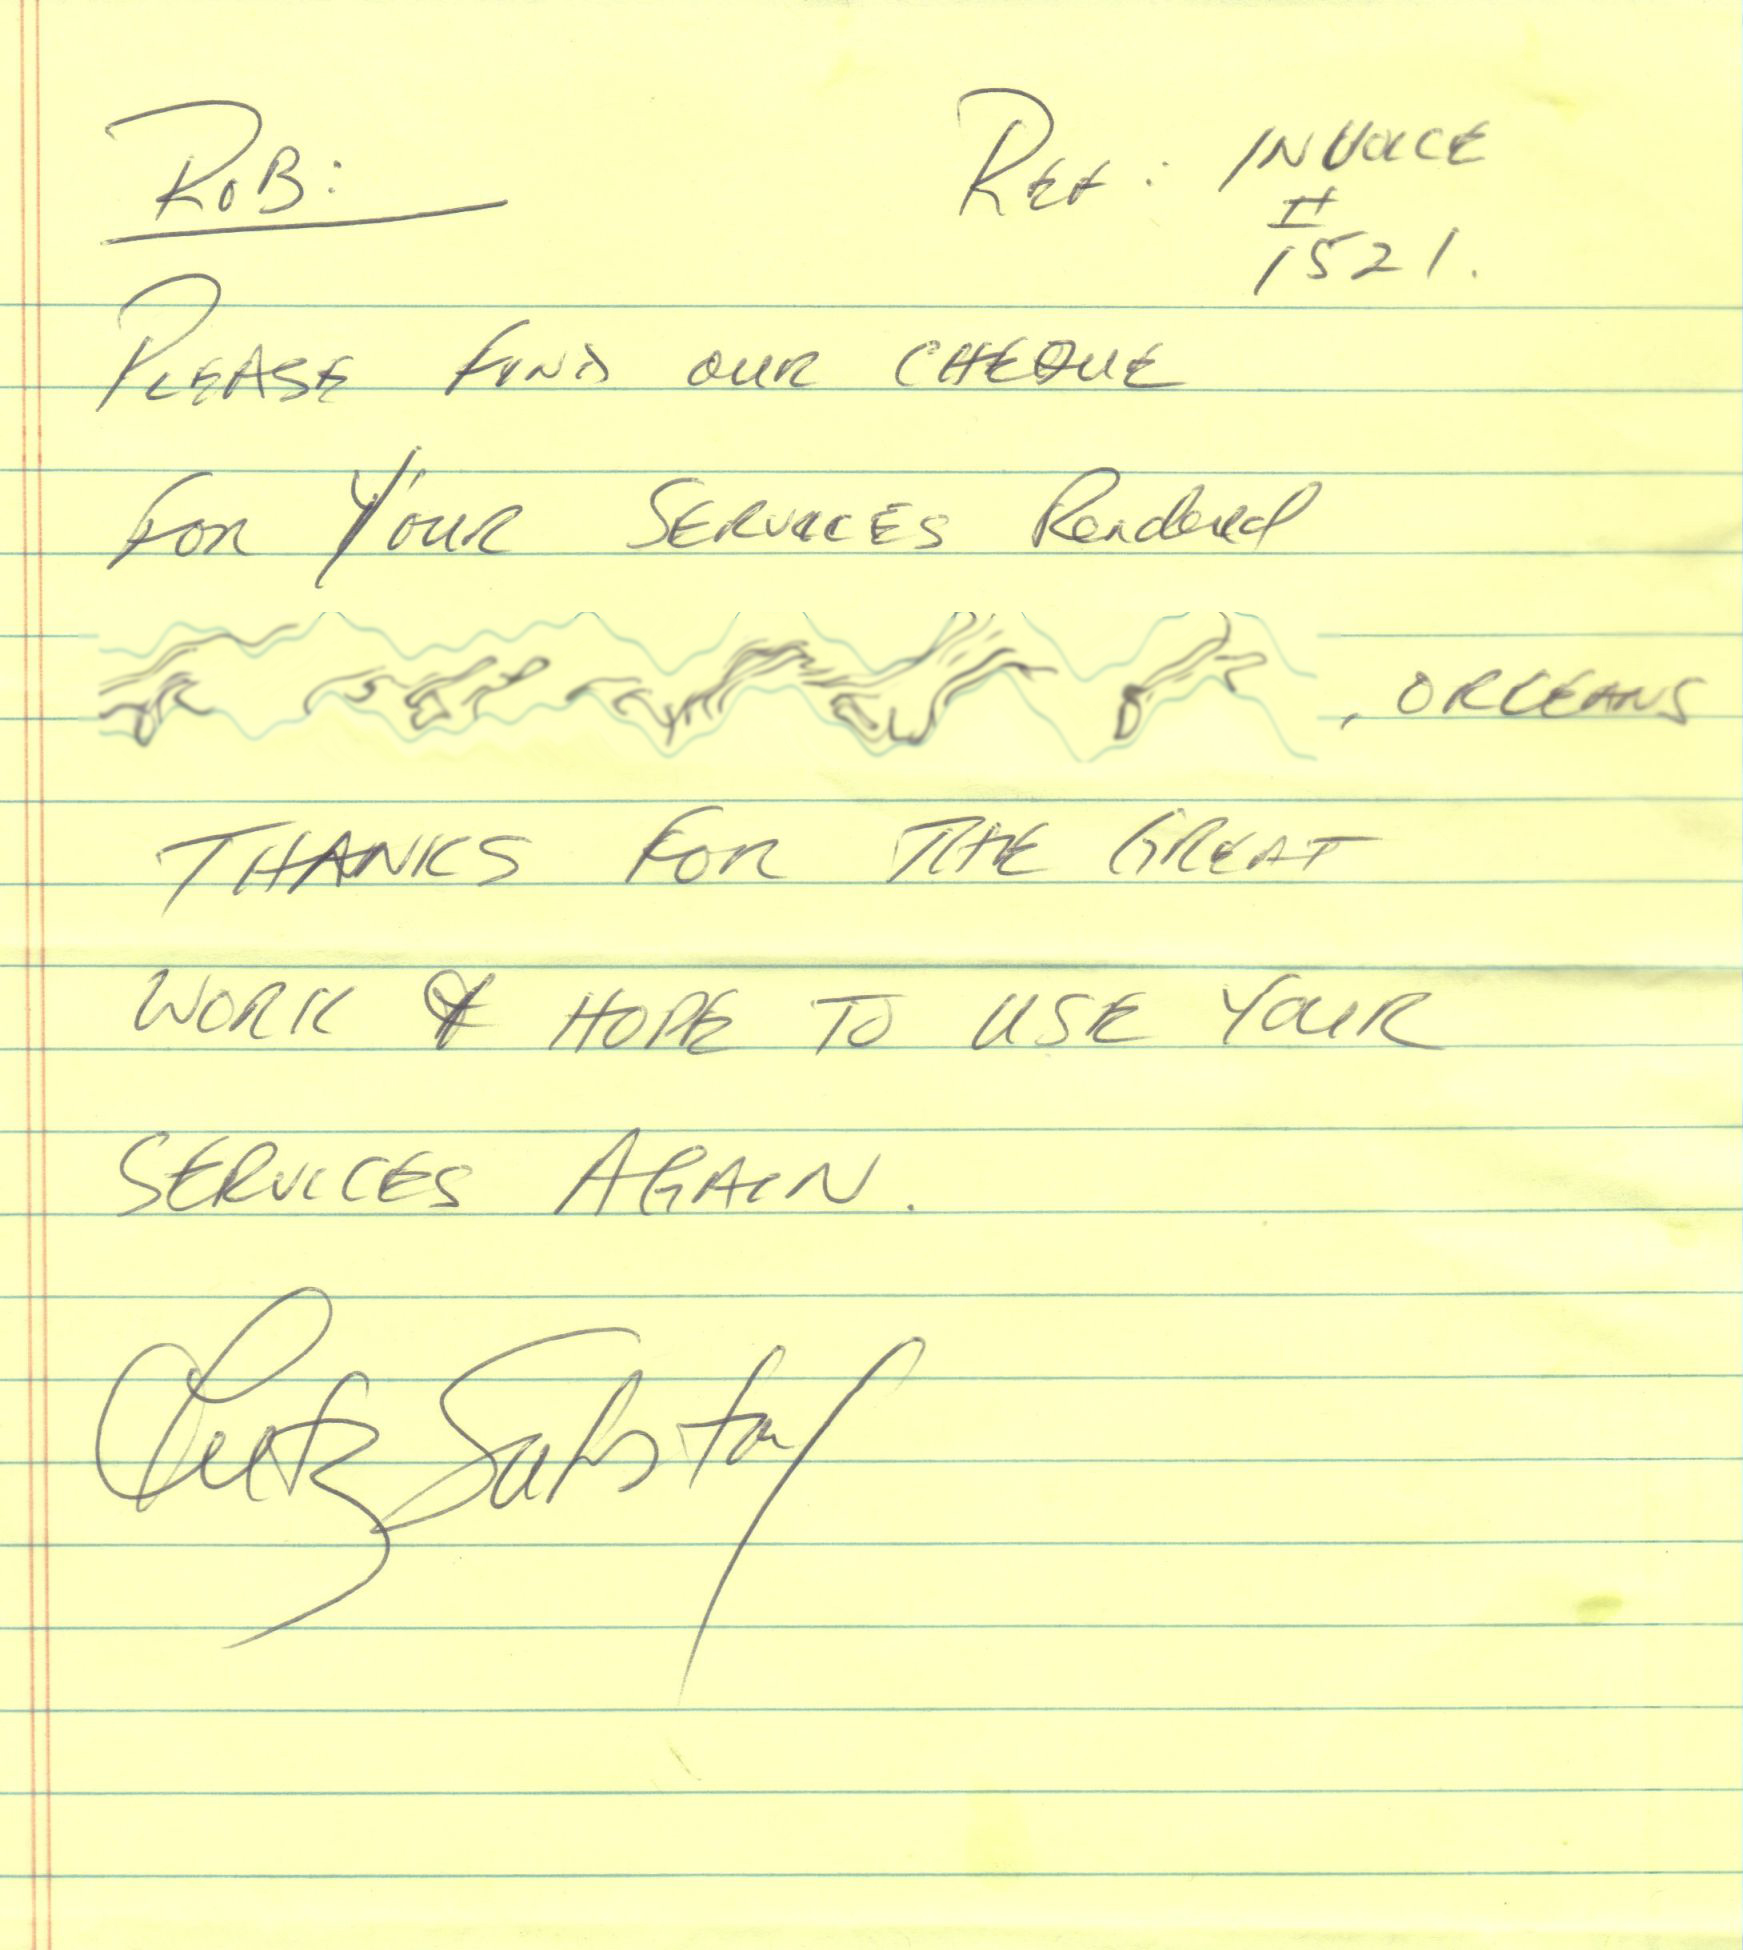 ROB:
REF: INVOICE
#
1521.
PLEASE FIND OUR CHEQUE
FOR YOUR SERVICES Rendered
, ORLEANS
THANKS FOR THE GREAT
WORK & HOPE TO USE YOUR
SERVICES AGAIN.